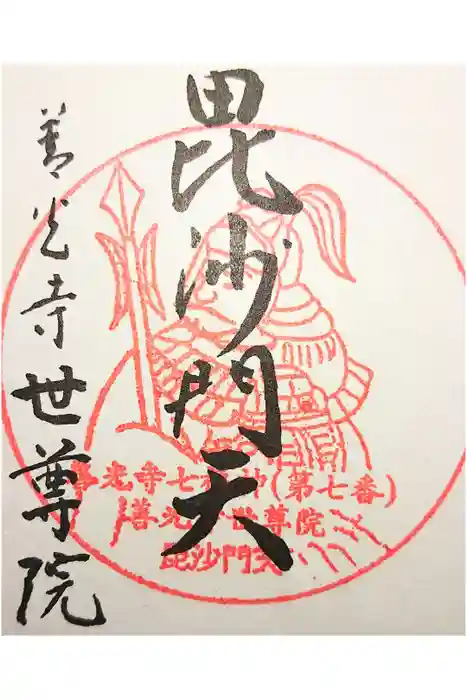 毘沙門天
善光寺世尊院
善光寺七福神(第七番)
善光寺世尊院
毘沙門天